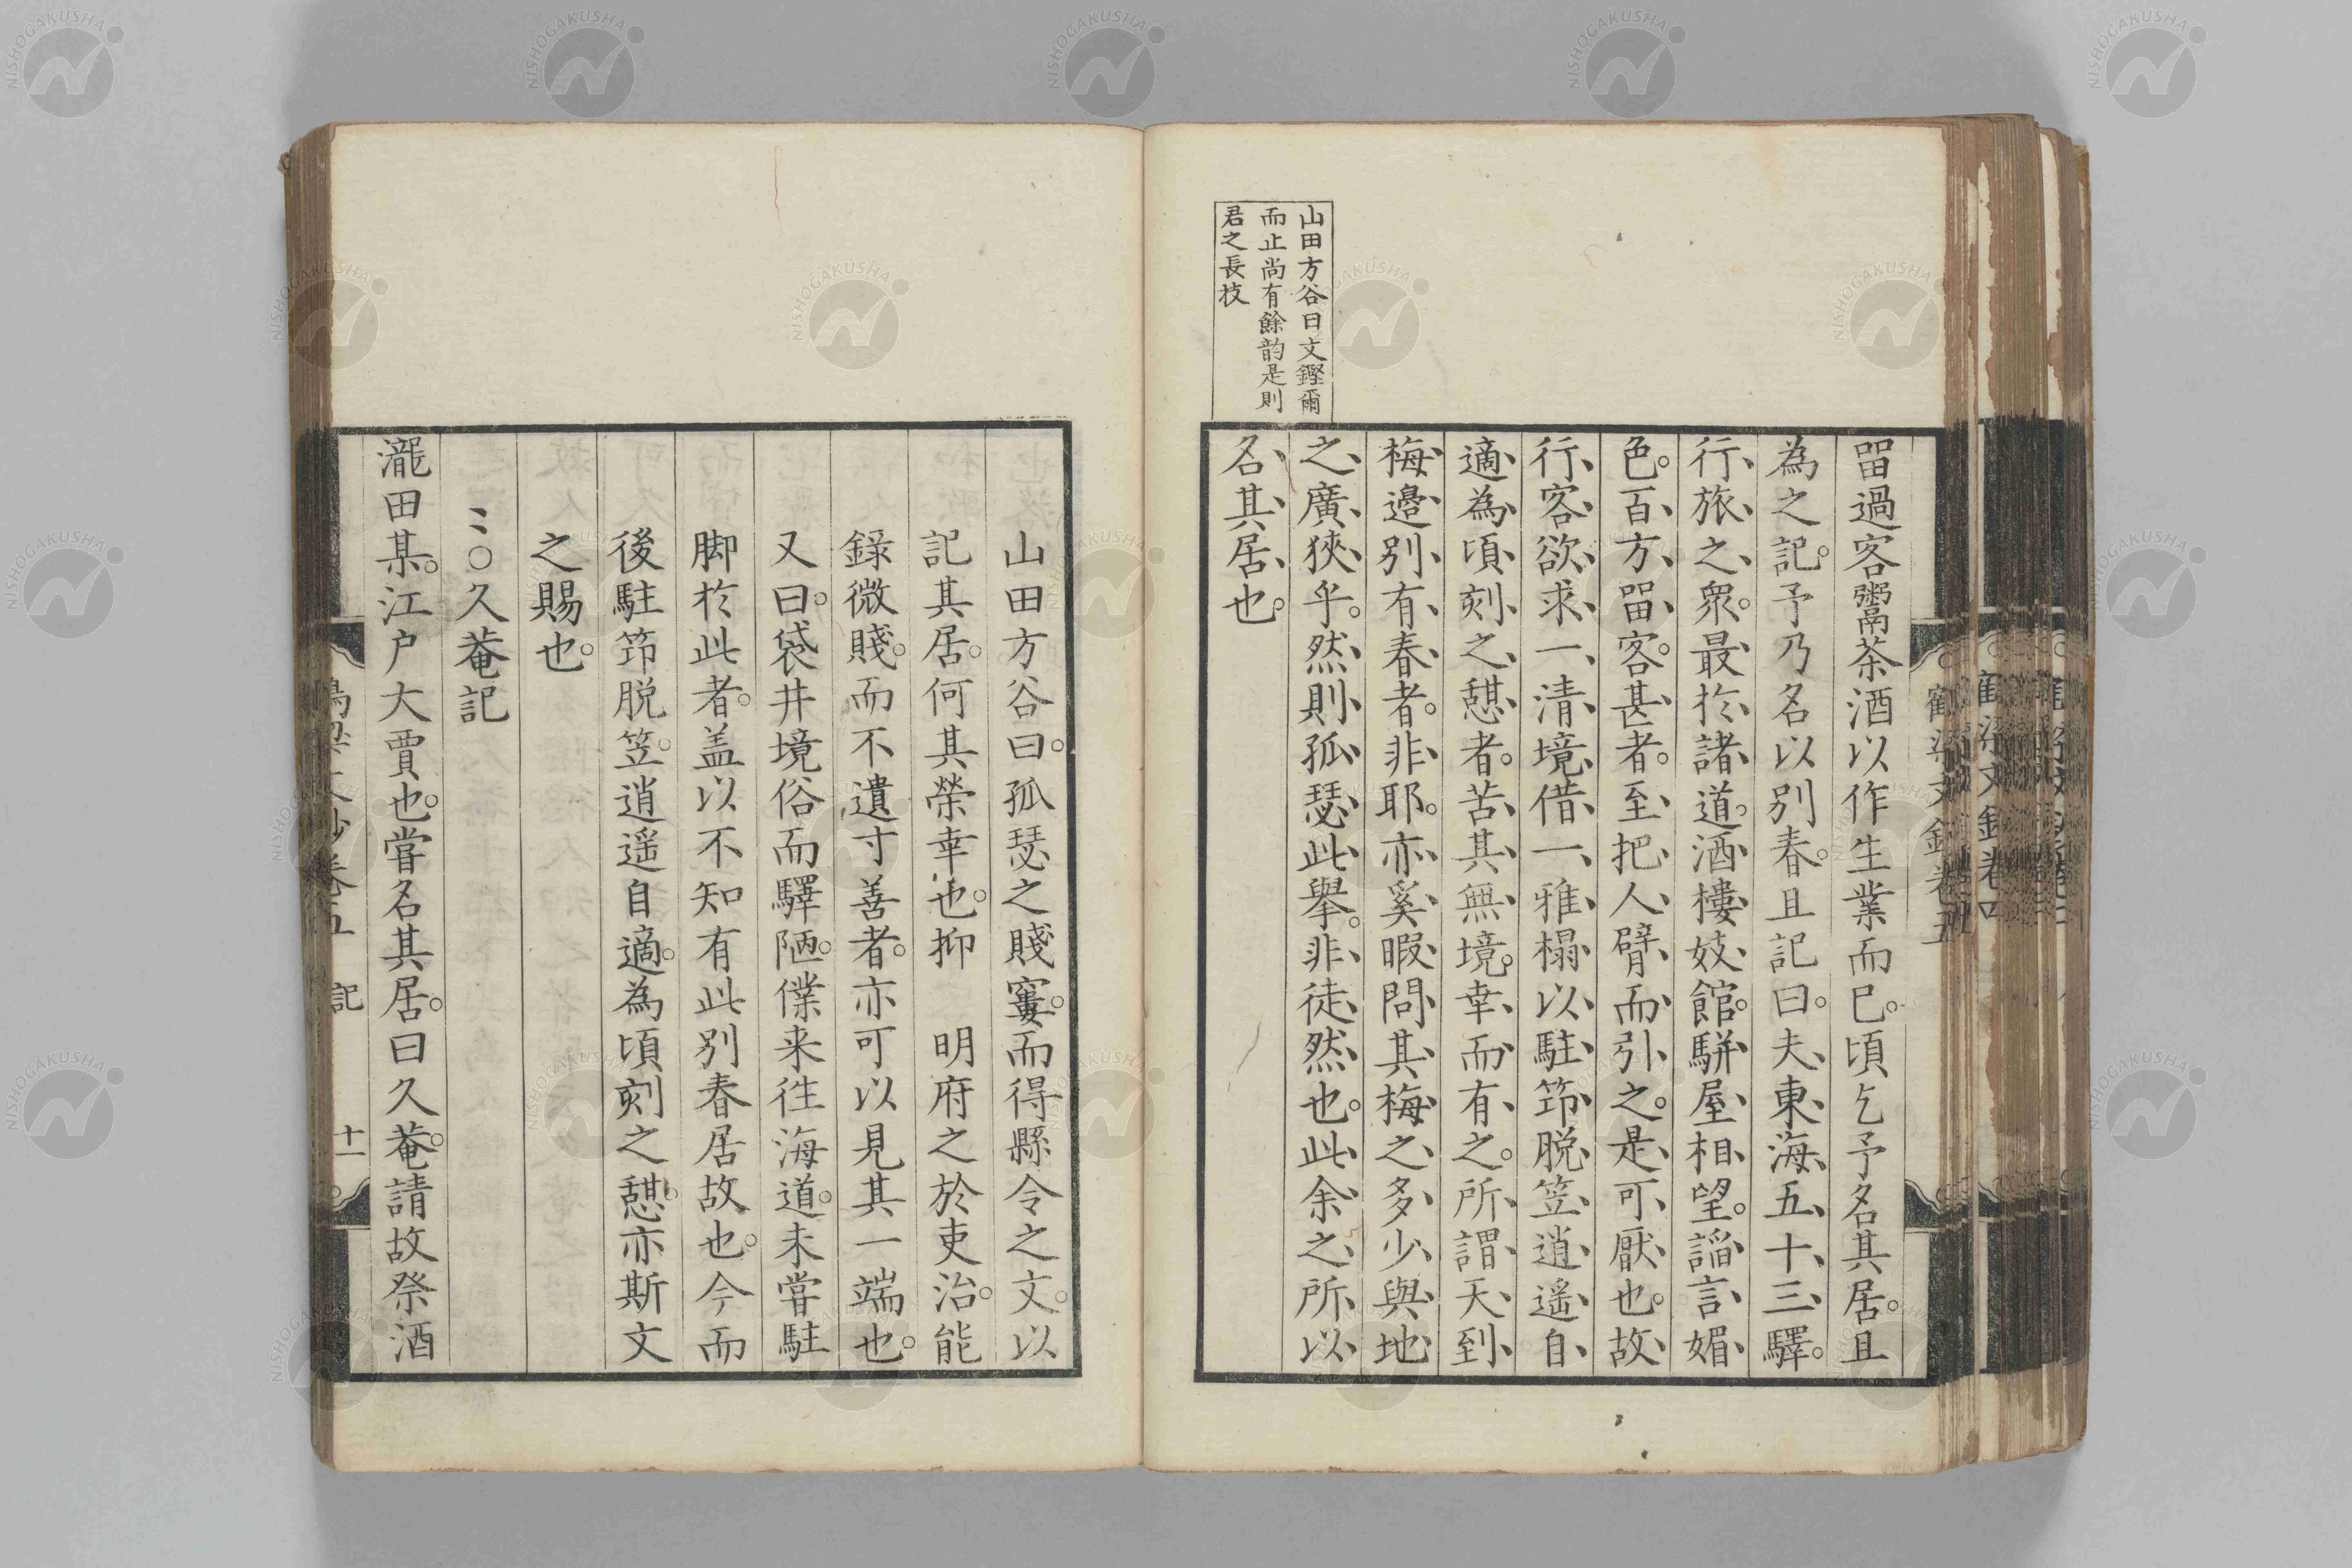 山田方谷曰文鏗爾
而止尚有餘韵是則
君之長技
畱過客鬻茶酒以作生業而已。頃乞予名其居。且
為之記。予乃名以別春。且記曰。夫東海五十三驛。
行旅之衆。最於諸道。酒樓妓館。駢屋相望。謟言媚
色。百方畱客。甚者。至把人臂而引之。是可厭也。故
行客欲求一清境借一雅榻以駐笻脱笠逍遥自
適為頃刻之憇者。苦其無境。幸而有之。所謂天到
梅邊別有春者。非耶。亦奚暇問其梅之多少與地
之廣狹乎。然則孤瑟此舉。非徒然也。此余之所以
名其居也。
山田方谷曰。孤瑟之賤窶。而得縣令之文。以
記其居。何其榮幸也。抑 明府之於吏治。能
錄微賤。而不遺寸善者。亦可以見其一端也。
又曰。袋井境俗而驛陋。僕来徃海道。未嘗駐
脚於此者。盖以不知有此別春居故也。今而
後駐笻脱笠。逍遥自適。為頃刻之憇。亦斯文
之賜也。
〻○久菴記
瀧田某。江戸大賈也。嘗名其居。曰久菴。請故祭酒
記
十一
鶴梁文鈔卷五
鶴梁文鈔卷四